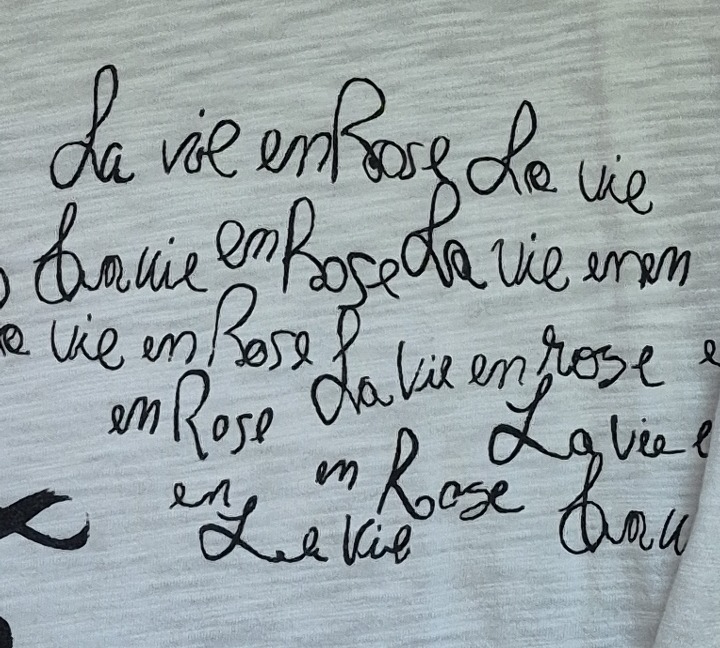 La vie en Rose La vie
La vie en Rose La vie enen
vie en Rose La vie en rose
en Rose La vie
en en Rose
La vie